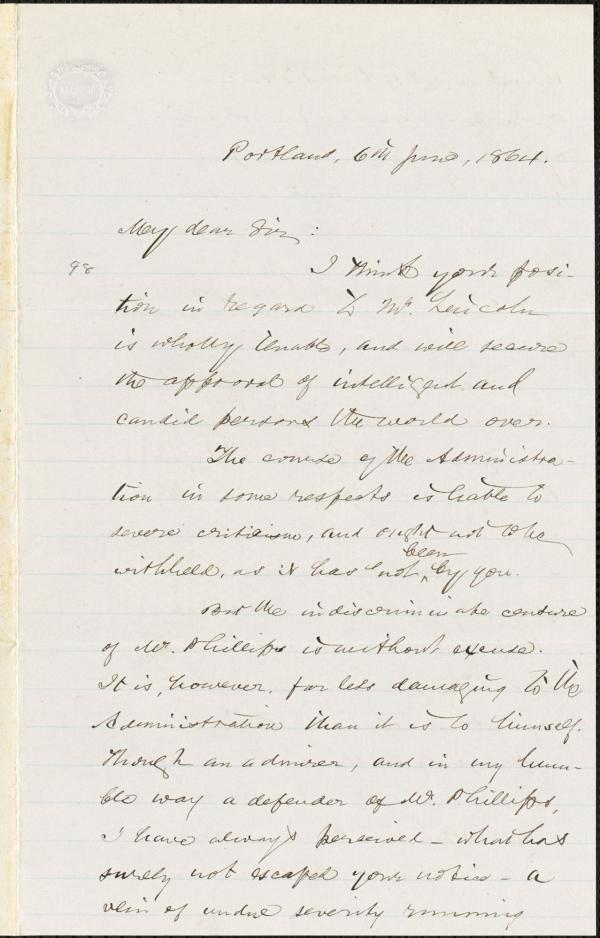 Portland, 6th June, 1864.
My dear Sir:
98
I think your posi-
tion in regard to Mr. Lincoln
is wholly tenable, and will secure
the approval of intelligent and
candid persons the world over.
The course of the Administra-
tion in some respects is liable to
severe criticism, and ought not to be
been
withheld, as it has not by you.
But the indiscriminate censure
of Mr. Phillips is without excuse.
It is, however, far less damaging to the
Administration than it is to himself.
Though an admirer, and in my hum-
ble way a defender of Mr. Phillips,
I have always perceived - what has
surely not escaped your notice - a
vein of undue severity running